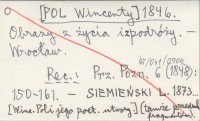 [POL Wincenty] 1846.
Obrazy z życia i podróży. –
Wrocław.
Rec.: Prz. Pozn. 6 (1848):
150-161. – SIEMIEŃSKI L. 1873...
[Winc. Pol i jego poet. utwory] (tamże przedruk
fragmentów).